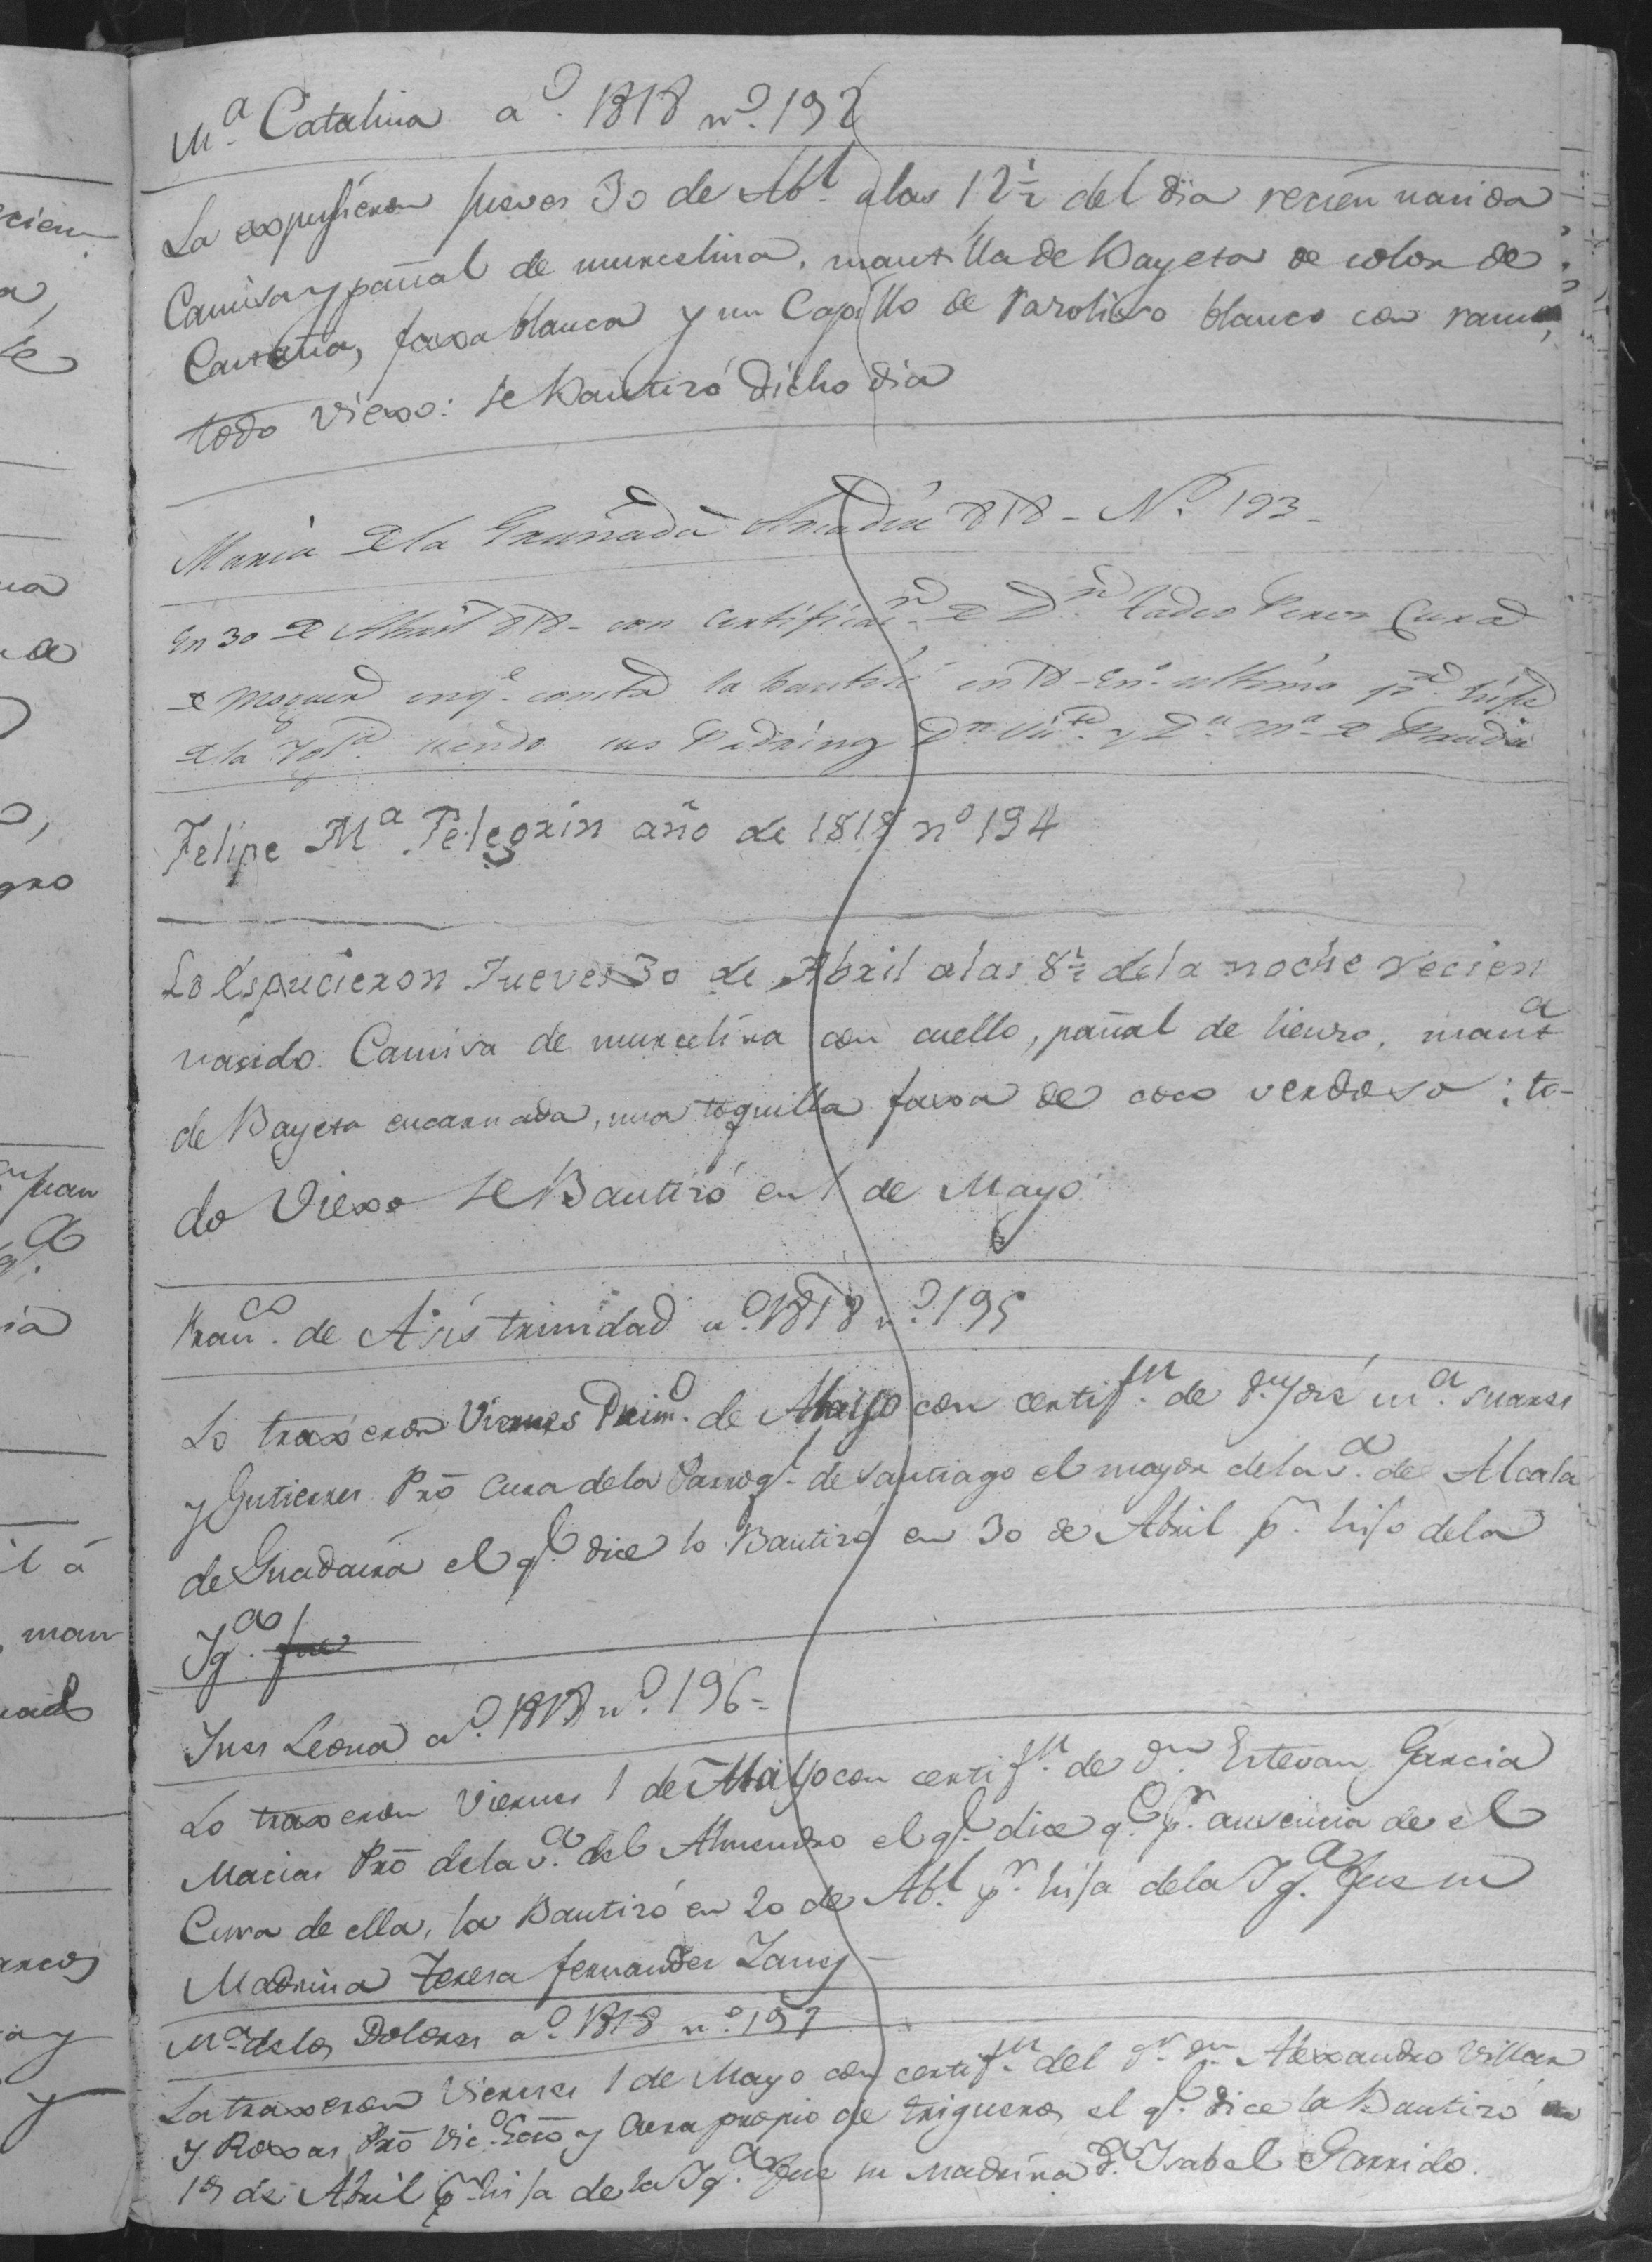 M.ª Catalina a.º 1818 n.º 192
La expusieron Jueves 30 de Ab.l a las 12½ del dia recien nacida
Camisa y pañal de murselina, mantilla de Bayeta de color de
Castaña, faxa blanca y un Capillo de Paroliso blanco con ramos,
todo Viexo: se Bautizó dicho dia
Maria de la Granada 818 - N.º 193 -
En 30 de Abril 818 - con Certificac.n de D.n Tadeo Perez Cura
de Moguer en q.e consta la bautizó en 18 - En.º ultimo p.r hija
de la Ygl.ª siendo sus Padrinos D.n y D.ª M.ª de
Felipe M.ª Pelegrin año de 1818 nº 194
Lo Espucieron Jueves 30 de Abril a las 8½ de la noche recien
nasido: Camisa de murselina con cuello, pañal de lienzo, mant.ª
de Bayeta encarnada, una toquilla faxa de coco verdoso: to-
do Viexo se Bautizó en 1 de Mayo
Fran.co de Asis trinidad a.º 1818 n.º 195
Lo traxeron Viernes Prim.º de Mayo con certif.n de D.n José M.ª Suarez
y Gutierres Prō Cura de la Parroq.l de Santiago el mayor de la V.ª de Alcala
de Guadaira el q.l dice lo Bautizó en 30 de Abril p.r hijo de la
Yg.ª fue
Ines Leona a.º 1818 n.º 196 =
Lo traxeron Viernes 1 de Mayo con certif.n de D.n Estevan Garcia
Macias Prō de la V.ª del Almendro el q.l dice q.e p.r ausencia de el
Cura de ella, la Bautizó en 20 de Ab.l p.r hija de la Yg.ª fue su
Madrina Teresa fernandez
M.ª de los Dolores a.º 1818 n.º 197
La traxeron Viernes 1 de Mayo con certif.n del S.r D.n Alexandro Villar
y Roxas, Prō Vic.º Ecō y Cura propio de trigueros, el q.l dice la Bautizó en
19 de Abril p.r hija de la Yg.ª fue su Madrina D.ª Ysabel Garrido.